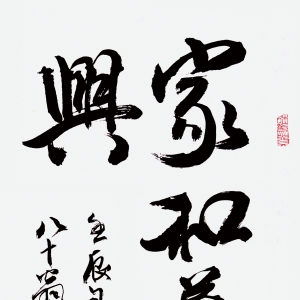 家和
興
壬辰
八十翁